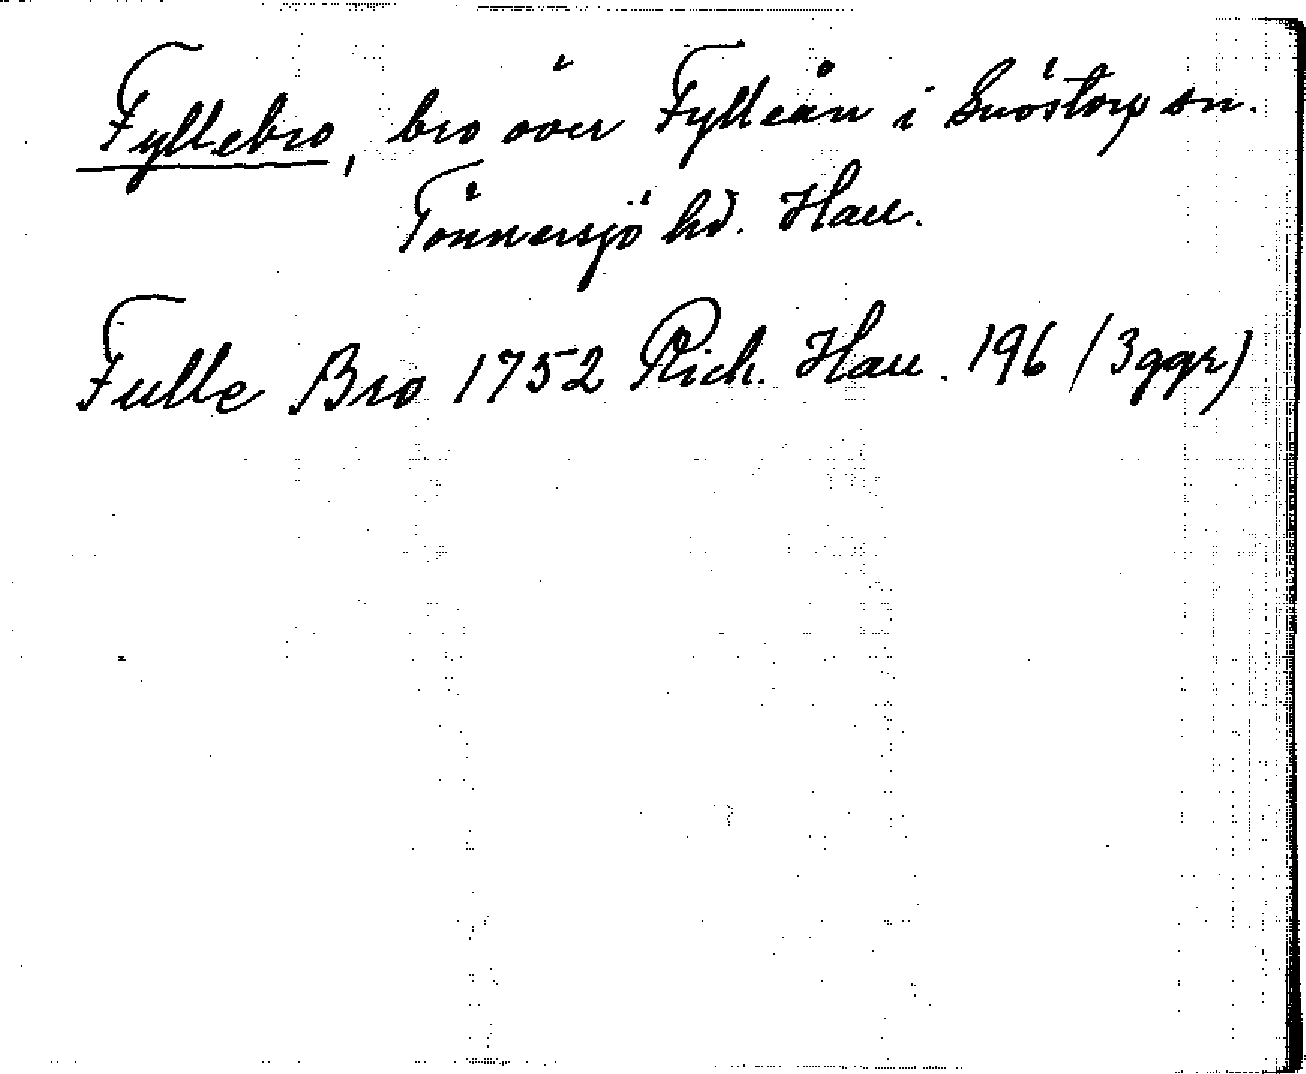 Fyllebro, bro över Fylleån i Snöstorp sn.
Tönnersjö hd. Hall.
Fulle Bro 1752 Rich. Hall. 196 (3ggr)